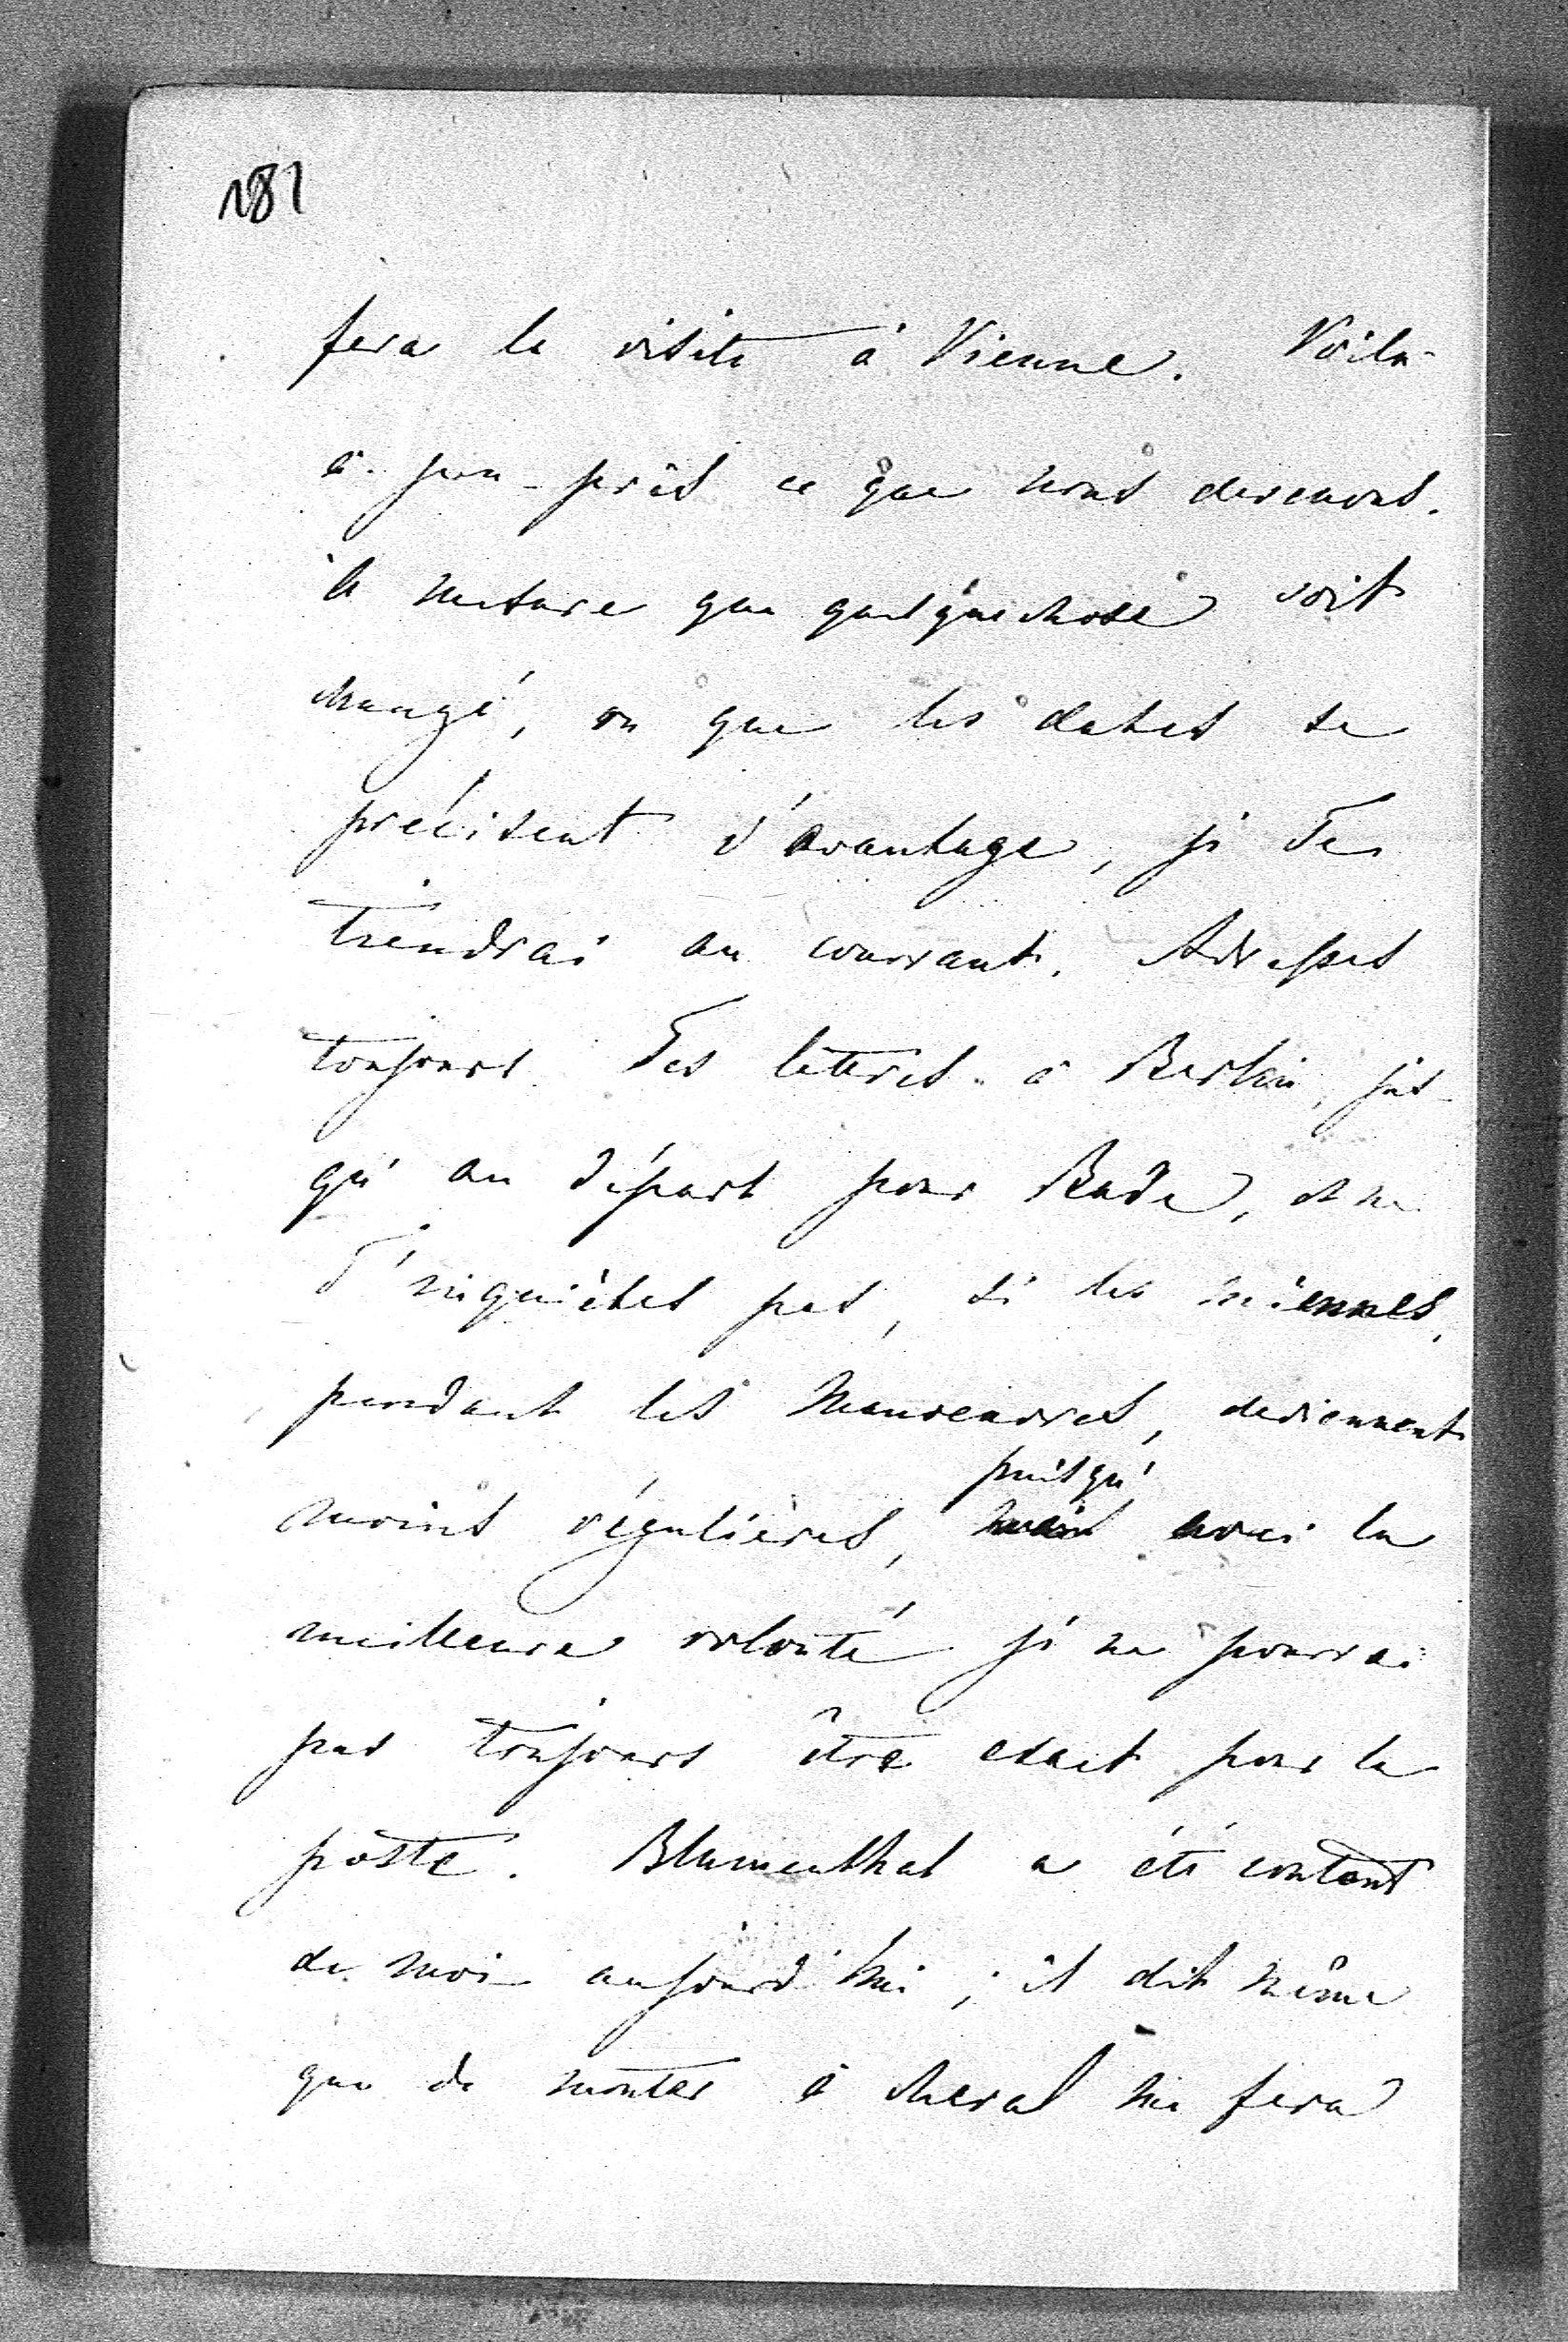 181
fera la visite à Vienne. Voilà
à-peu-près ce que nous devenons.
A mesure que quelquechose soit
changé, ou que les dates se
précisent d'avantage, je Te
tiendrai au courrant. Adresses
toujours Tes lettres à Berlin, jus-
qu'au départ pour Bade, et ne
T'inquiètes pas, si les miennes,
pendant les manoeuvres, deviennent
puisqu'
moins régulières, mais avec la
meilleure volonté je ne pourrai
pas toujours être exact pour la
poste. Blumenthal a été content
de moi aujourd'hui; il dit même
que de monter à cheval me fera